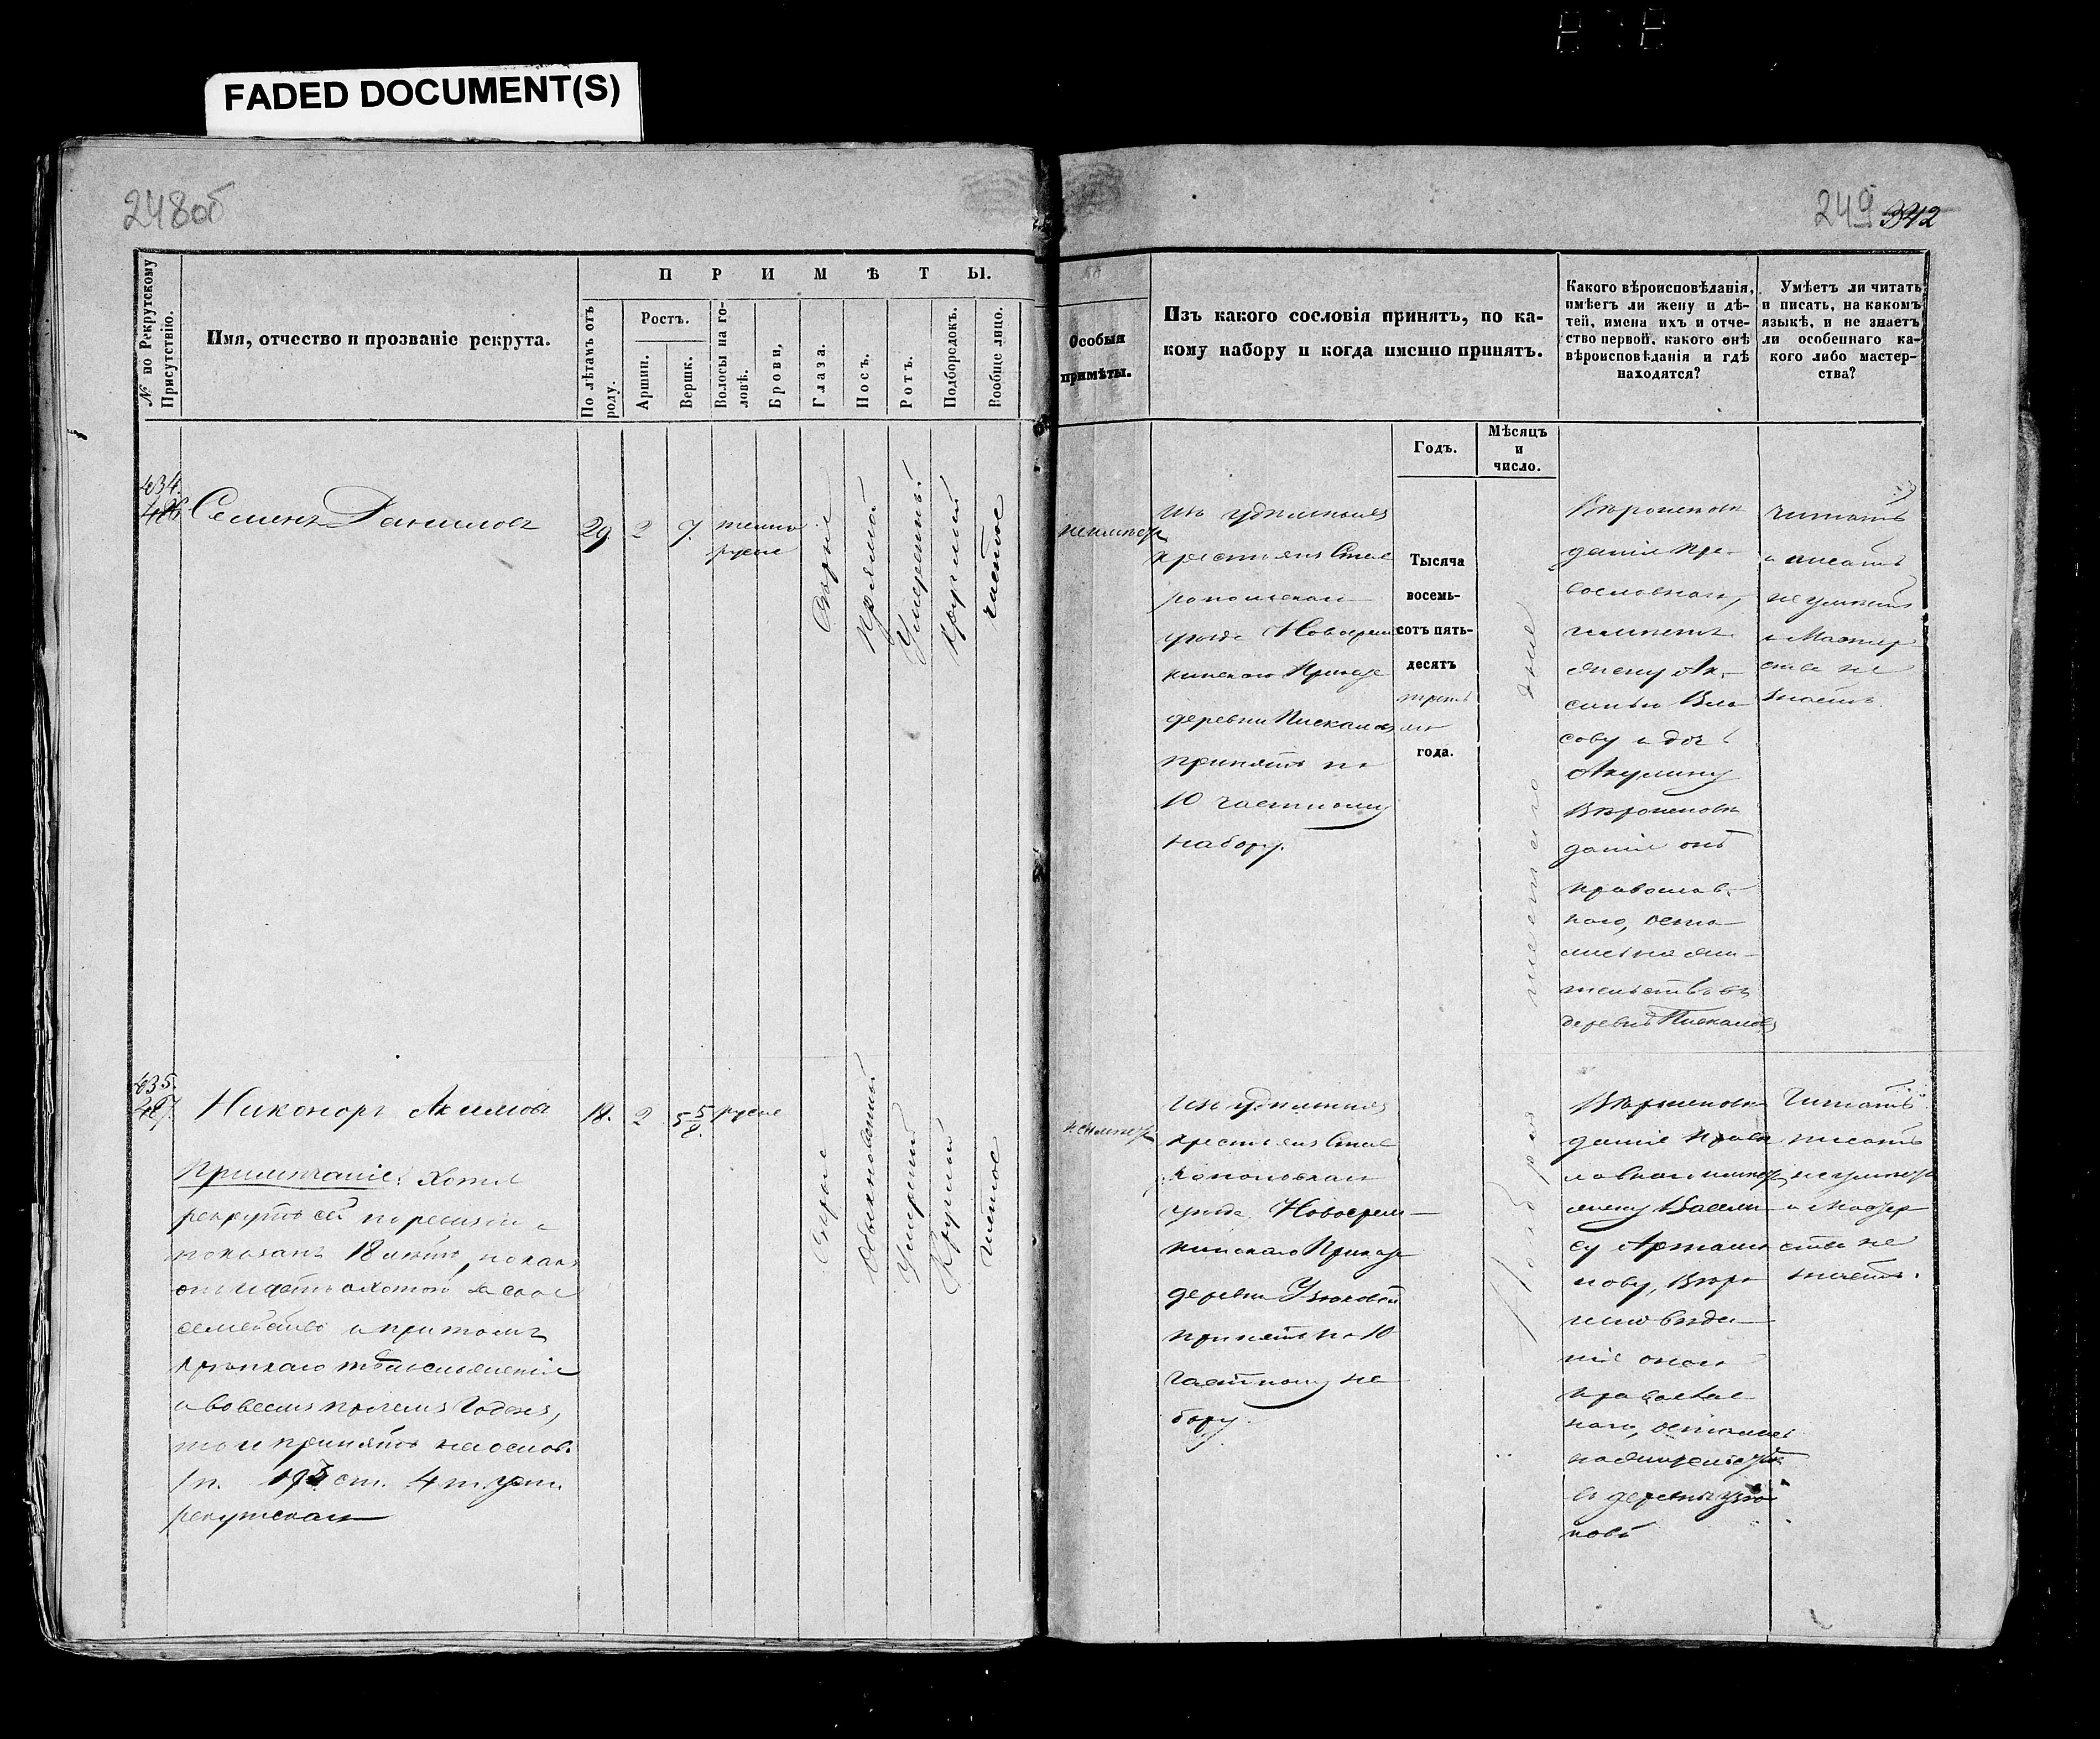 FADED DOCUMENT(S)
248об
249 342
№ по Рекрутскому Присутствію.
Имя, отчество и прозваніе рекрута.
ПРИМѢТЫ.
По лѣтамъ отъ роду.
Ростъ.
Аршин.
Вершк.
Волосы на головѣ.
Брови,
Глаза.
Носъ.
Ротъ.
Подбородокъ.
Вообще лицо.
Особыя
примѣты.
Изъ какого сословія принятъ, по ка-
кому набору и когда именно принятъ.
Годъ.
Мѣсяцъ
и
число.
Какого вѣроисповѣданія,
имѣетъ ли жену и дѣ-
тей, имена ихъ и отче-
ство первой, какого онѣ
вѣроисповѣданія и гдѣ
находятся?
Умѣетъ ли читать
и писать, на какомъ
языкѣ, и не знаетъ
ли особеннаго ка-
кого либо мастер-
ства?
434.
486
Семенъ Даниловъ
29
2
7.
темно
русые
Сѣрые
Прямой
Умеренный
Круглый
чистое
неимеет
Изъ удельныхъ
крестьянъ Став
ропольскаго
уезда Новоерем
кинскаго Приказа
деревни Пискалов
принятъ по
10 частному
набору.
Тысяча
восемь-
сотъ пять-
десятъ
треть
яго
года.
Ноября шестаго дня
Вѣроисповѣ
данія пра-
вославнаго,
имѣетъ
жену Ак-
синью Вла
сову и дочь
Акулину
Вѣроисповѣ
данія онѣ
православ-
наго, оста-
лись на жи-
тельстве въ
деревнѣ Пискаловѣ
Читать
и писать
не умѣетъ
и Мастер
ства не
знаетъ.
435.
487.
Никоноръ Акимовъ
18.
2
5 5/8.
русые
Сѣрые
Обыкновенный
Умерен
Круглый
чистое
неимеет
Примѣчаніе: Хотя
рекрутъ сей по ревизіи
показанъ 18 лѣтъ, но какъ
онъ идетъ охотою за свое
семейство и притомъ
крѣпкаго тѣлосложенія
и вовсемъ прочемъ годенъ,
то и принятъ на основ.
195 ст. 4 т. уст.
рекрутскаго
Изъ удельныхъ
крестьянъ Став
ропольскаго
уезда Новоерем-
кинскаго Приказа
деревни Узюковой
принятъ по 10
частному на
бору.
Вѣроисповѣ
данія правос
лавнаго имѣетъ
жену Васили
су Артамо
нову, Вѣро
исповѣда-
ніе оная
православ
наго, осталась
на жительствѣ
въ деревнѣ Узю
ковѣ
Читать
писать
не умѣетъ
и Мастер
ства не
знаетъ.